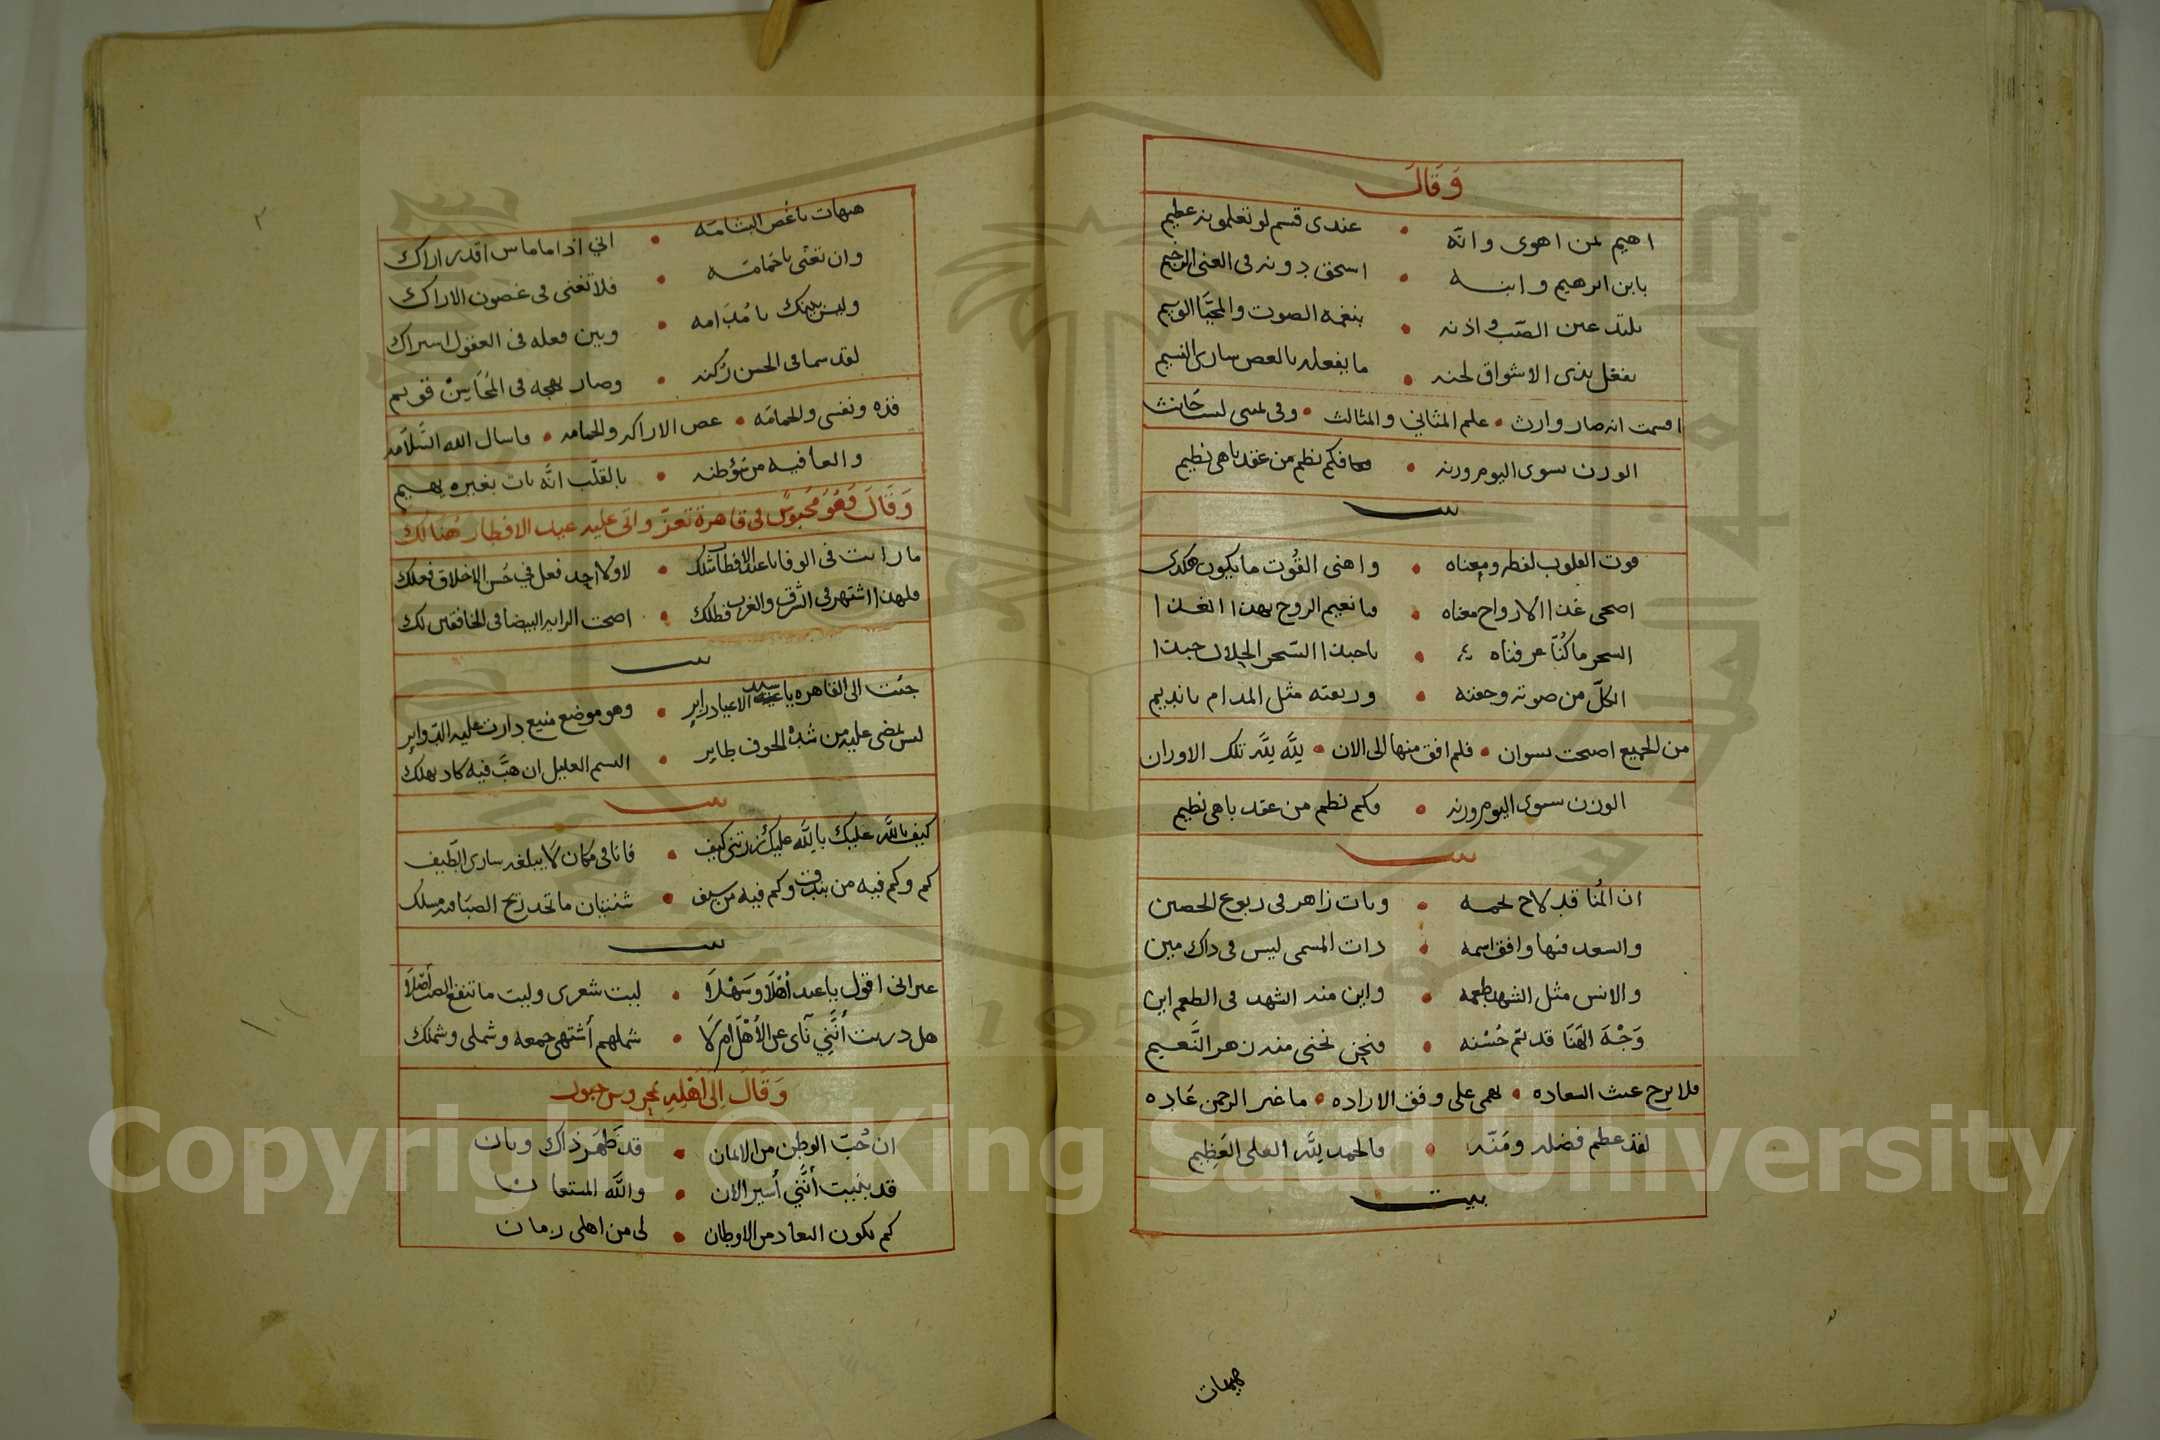 وَقَالَ
اهيم لمن اهوى وانّه • عندى قسم لو تعلمونه عظيم
بابن ابرهيم وابنه • اسحق دونه فى الغنى
يلتذ عين الصّب واذنه • بنغمة الصوت والمحيّا الوسيم
بفعل بذى الاشواق لحنه • ما يفعله بالغصن سارى النسيم
اقسمت انه صار وارث • علم المثاني والمثالث • وفى لست حَانث
الوزن يسوى اليوم وزنه • فكم نظم من عقد باهى نظيم
بيت
قوت القلوب لفظه ومعناه • واهنى القُوت ما يكون هكدى
اضحى غذا الارواح مغناه • ما نعيم الروح بهدا الغدا
السحر ما كُنّا عرفناه • يا حبدا السّحر الحلال حبدا
الكلّ من صوته وجفنه • وريقته مثل المدام يا نديم
من الجميع اصبحت نسوان • فلم افق منها الى الان • لِلَّه لِلَّه تلك الاوزان
الوزن يسوى اليوم وزنه • وكم نظم من عقد باهى نظيم
بيت
ان المُنا قد لاح نجمه • وبات زاهر فى ربوع الحصين
والسعد فيها وافق اسمه • ذات المسمى ليس فى ذاك مين
والانس مثل الشهد طعمه • واين منه الشهد فى الطعم اين
وَجْهَ الهَنَا قد تم حُسْنه • فنحن نجنى منه زهر النَّعيم
فلا برح غيث السعاده • يهمى على وفق الاراده • ما غير الرحمن عَاده
لقد عظم فضله ومَنّه • فالحمد لِلَّه العلى العَظِيم
بيت
هيهات
هيهات يا غُصن البشامَه • اني اذا ما ماس اقدر اراك
وان تغنّى يا حَمامَه • فلا تغنى فى غصون الاراك
وليس بينك يا مُدَامه • وبين فعله فى العقول اشتراك
لقد سما فى الحسن رُكنه • وصار نهجه فى المُحَاسِنْ قويم
قده ونفسى والحمامَه • غصن الاراكه والحمامه • فاسال الله السَّلامَه
والعافيه من • بالقلب انَّه بات بغيره يهيم
وَقَالَ وَهُوَ مَحْبُوسٌ في قاهرة تعزّ واتى عليه عيد الافطار هُنَالِكَ
ما رايت فى الوفا يا عيد الافطار شكلك • لا ولا اجد فعل في حُسن الاخلاق فعلك
فلهدا اشتهر فى الشرق والغرب فضلك • اضحت الرايه البيضا فى الخافقين لك
بيت
جئت الى القاهره يا سيد الاعياد زاير • وهو موضع منيع دارت عليه الدّواير
ليس يمضى عليه من شدّة الخوف طاير • النسيم العليل ان هبَّ فيه كاد يهلك
بيت
كيف بالله عليك بالِلّه عليك زُرتنى كيف • فانا فى مكان لَا يبلغه سارى الطّيف
كم وكم فيه من بندق وكم فيه من سيف • ما تجد ريح الصبَا فيه مسلك
بيت
غير انى اقول يا عيد أهْلاً وسَهْلاً • ليت شعرى وليت ما تنفع الصّب أصْلاَ
هل دريت أنَّني نآى عن الأهْل ام لَا • شملهم أشتهى جمعه وشملى وشملك
وَقَالَ اِلى اَهْلِهِ بمحروس حبور
ان حُبّ الوطن من الايمان • قد ظَهَر ذاك وبان
قد بليت أنَّني أسير الان • والله المستعان
كم يكون البعاد من الاوطان • لى من اهلى زمان